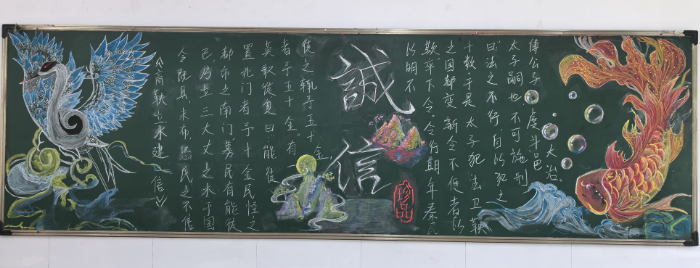 《商鞅立木建信》
令既具未布恐民之不信
已乃立三丈之木于国
都市之南门募民有能徙
置北门者予十金民怪之
莫敢徙复曰能徙
者予五十金。有
徙之,辄予五十金
誠信
以明不
欺卒下令。令行期年秦民
之国都言新令不便者以
十数于是太子犯法卫鞅
曰法之不行自上犯之
太子嗣也不可施刑
傅公子虔
大治